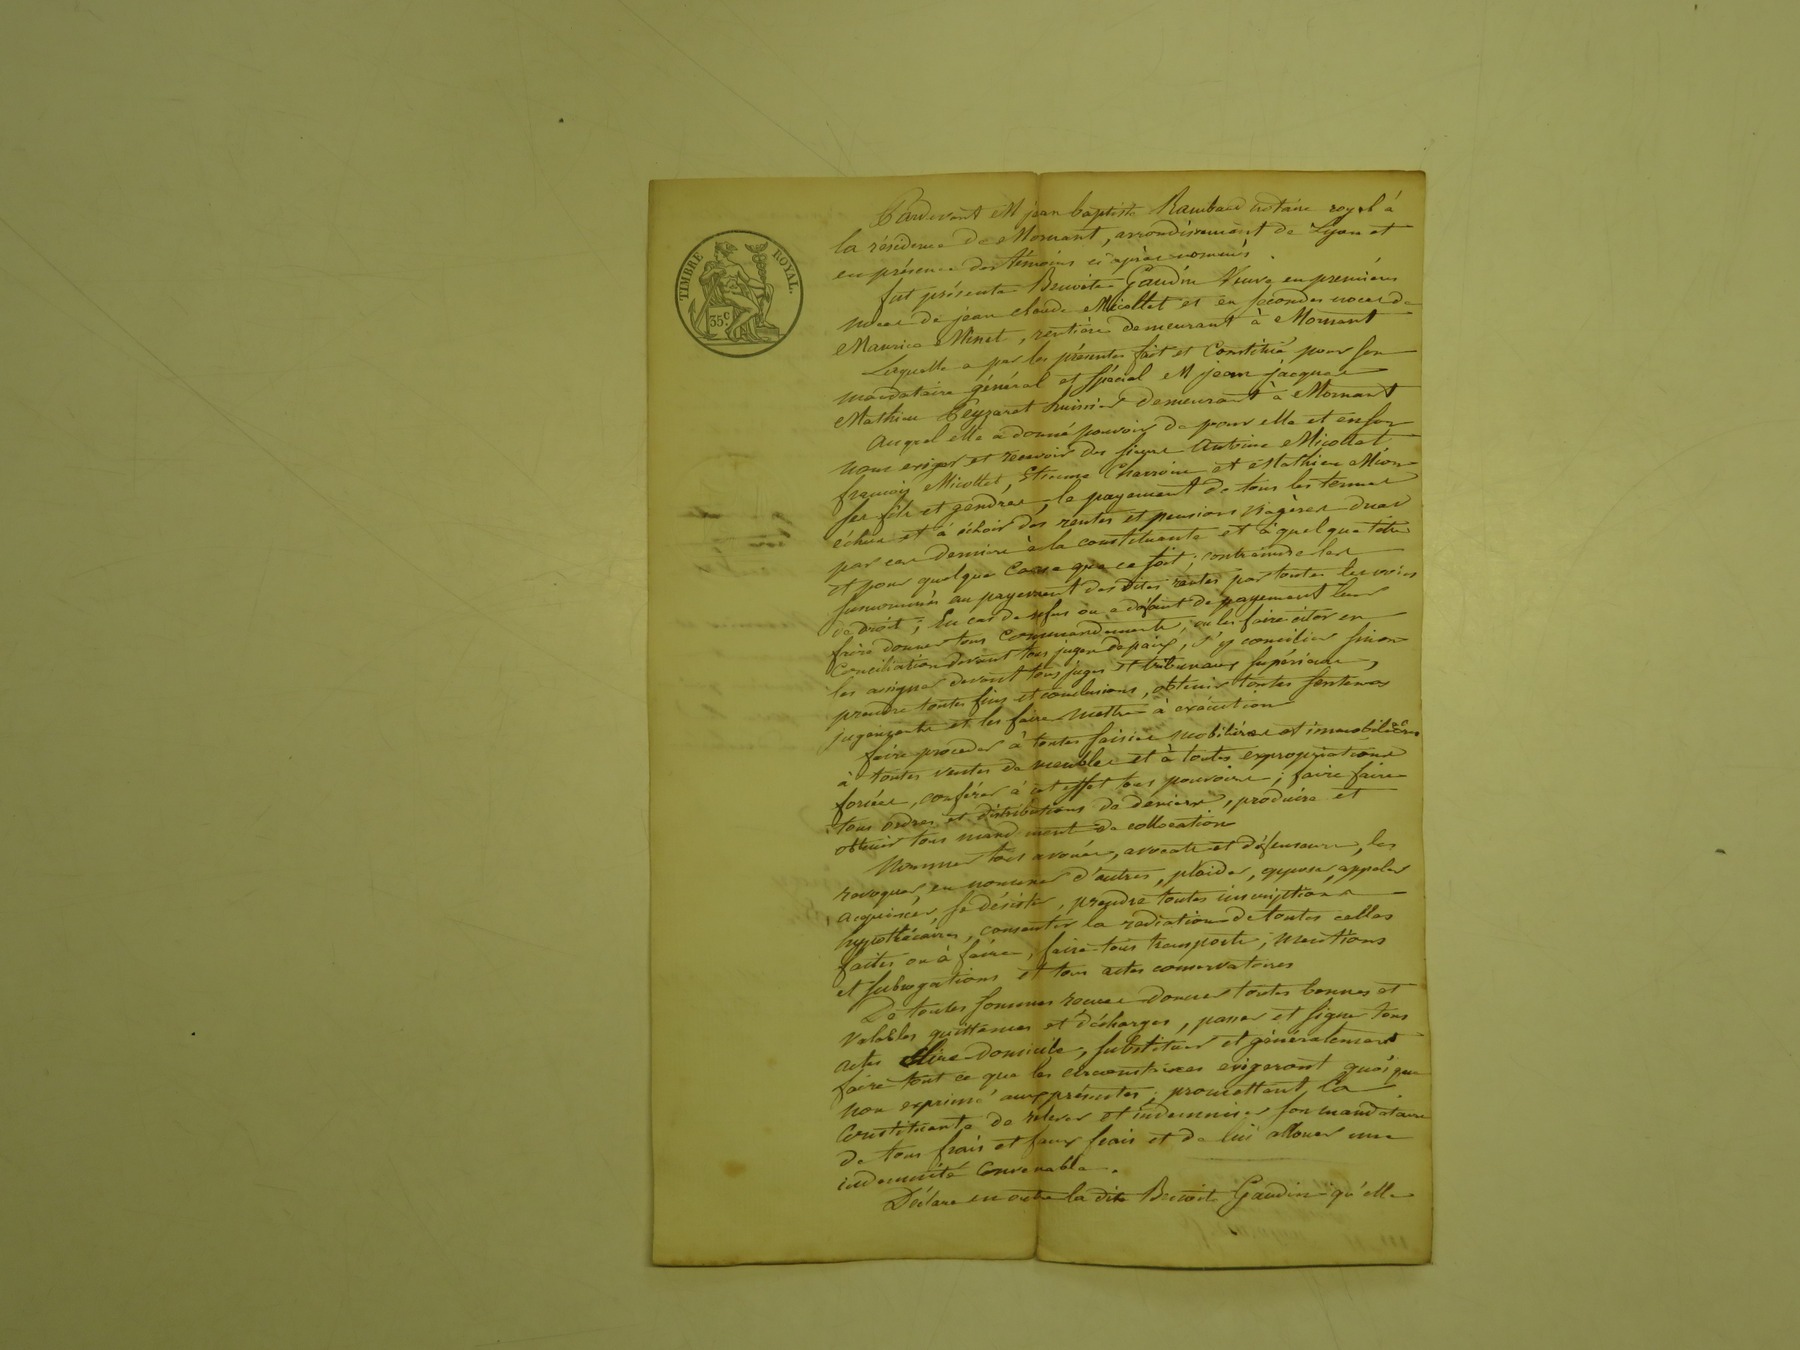 TIMBRE ROYAL.
35c
Pardevant M jean baptiste Rambaud notaire royal à
la résidence de Mornant, arrondissement de Lyon et
en présence des témoins ci après nommés.
fut présente Benoite Gaudin Veuve en premières
noces de jean claude Micollet et en secondes noces de
Maurice Minet, rentière demeurant à Mornant
Laquelle a par les présentes fait et Constitué pour son
mandataire général et spécial M jean jacques
Mathieu Peyzaret huissier demeurant à Mornant
Auquel elle a donné pouvoir de pour elle et en son
nom exiger et recevoir des sieurs Antoine Micollet
françois Micollet, Etienne Charvin et Mathieu Mion
ses fils et gendres, le payement de tous les termes
échus et à échoir des rentes et pensions viagères dues
par ces derniers à la constituante et à quelque titre
et pour quelque Cause que ce soit; contraindre les
susnommés au payement des dites rentes par toutes les voies
de droit; En cas de refus ou a défaut de payement leur
faire donner tous commandements, ou les faire citer en
Conciliation devant tous juges de paix, s'y concilier sinon
les assigner devant tous juges et tribunaux supérieurs,
prendre toutes fins et conclusions, obtenir toutes sentences
jugements et les faire mettre à exécution
faire proceder à toutes saisies mobilières et immobilières
à toutes ventes de meubles et à toutes expropriations
forcées, conférer à cet effet tous pouvoirs; faire faire
tous ordres et distributions de deniers, produire et
obtenir tous mandement de collocation
Nommer tous avoués, avocats et défenseurs, les
revoquer en nommer d'autres, plaider, opposer, appeler
acquiescer, se désister, prendre toutes inscriptions
hypothécaires, consentir la radiation de toutes celles
faites ou à faire, faire tous transports, mentions
et subrogations et tous actes conservatoires
De toutes sommes reçues donner toutes bonnes et
valables quittances et décharges, passer et signer tous
actes Elire domicile, substituer et généralement
faire tout ce que les circonstances exigeront quoique
non exprimé aux présentes; promettant la
Constituante de relever et indemniser son mandataire
de tous frais et faux frais et de lui allouer une
indemnité Convenable.
Déclare en outre la dite Benoite Gaudin qu'elle